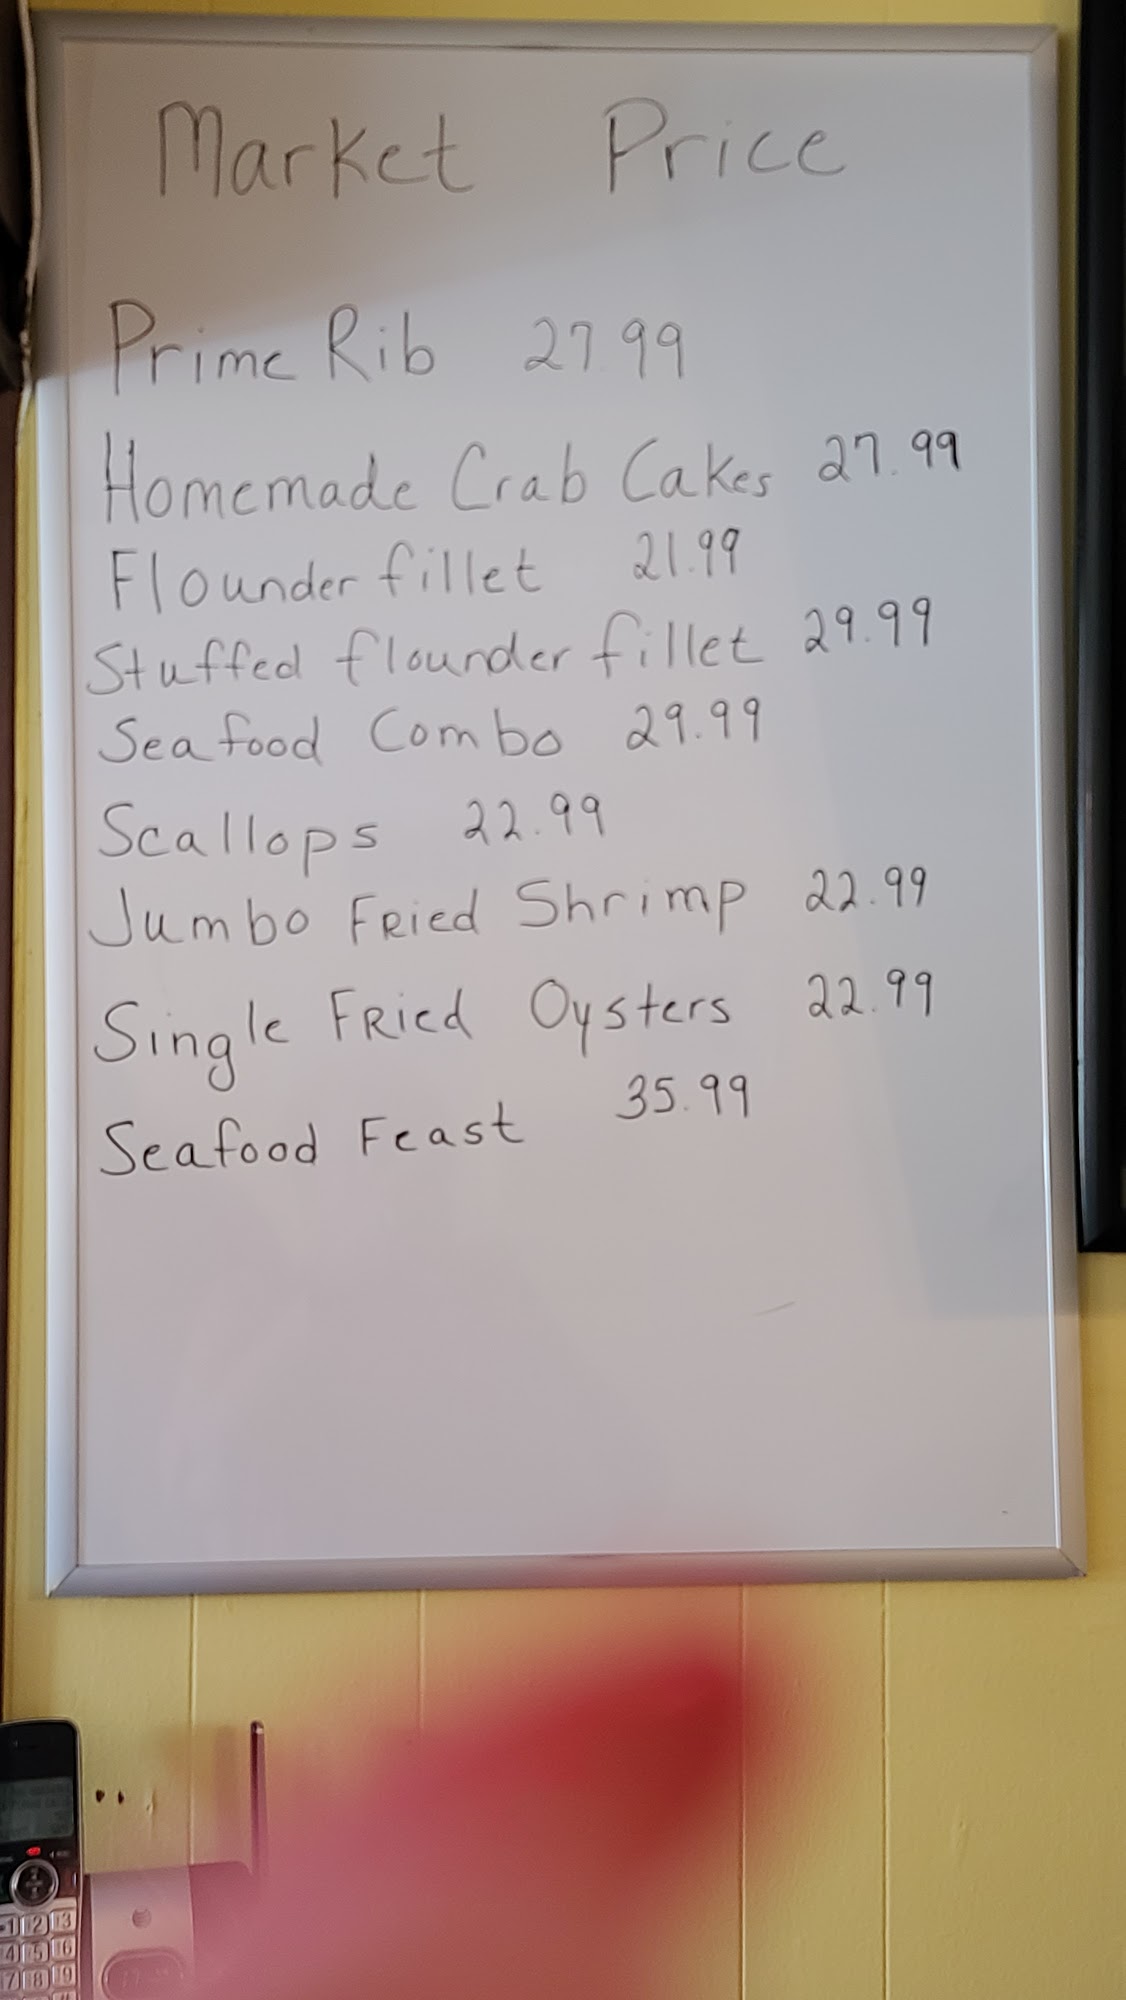 Market Price
Prime Rib 27.99
Homemade Crab Cakes 27.99
Flounder fillet 21.99
Stuffed flounder fillet 29.99
Seafood Combo 29.99
Scallops 22.99
Jumbo FRied Shrimp 22.99
Single FRied Oysters 22.99
Seafood Feast 35.99
1 2 3
4 5 6
7 8 9